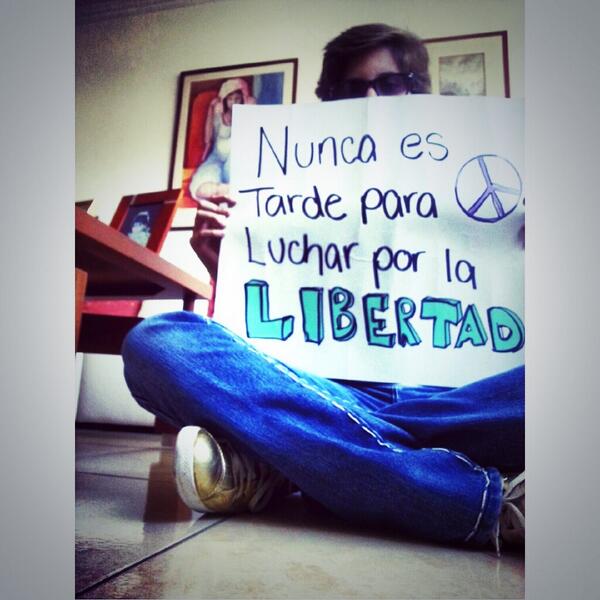 Nunca es
Tarde para
Luchar por la
LIBERTAD